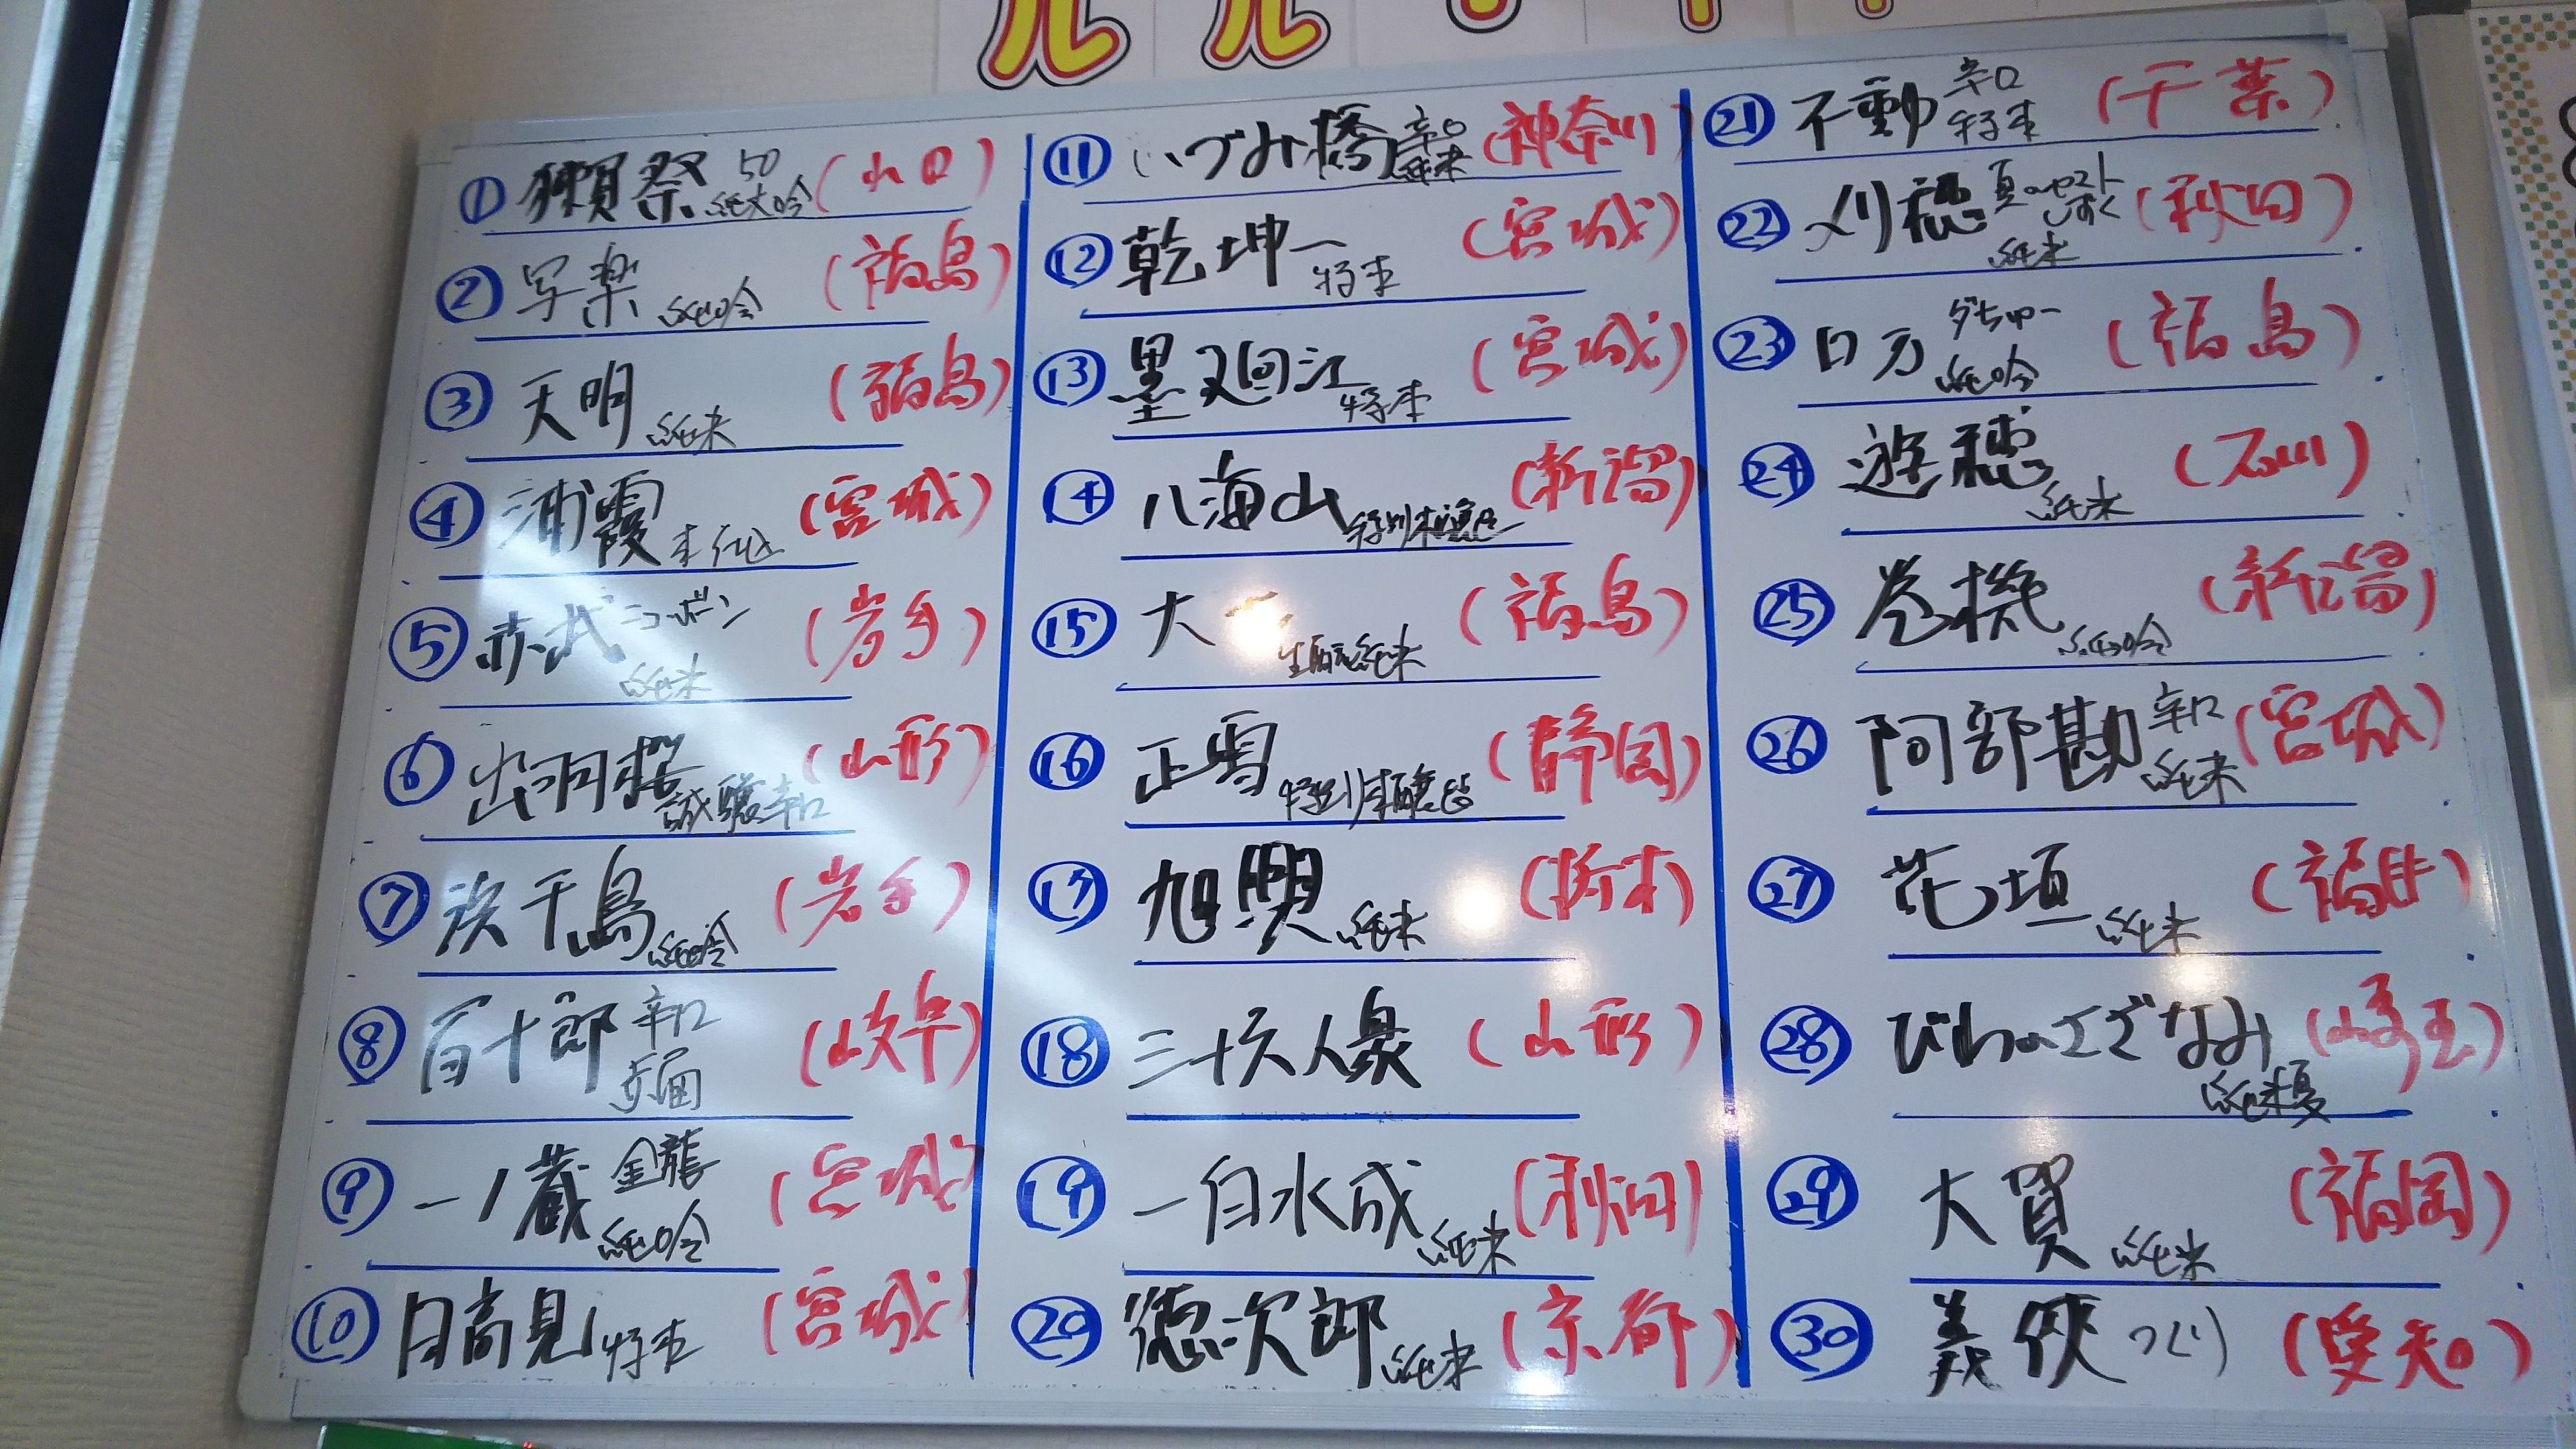 ① 獺祭 50 純大吟 (山口)
② 写楽 純吟 (福島)
③ 天明 純米 (福島)
④ 浦霞 本仕込 (宮城)
⑤ 赤武 純米 (岩手)
⑥ 出羽桜 誠醸辛口 (山形)
⑦ 浜千鳥 純吟 (岩手)
⑧ 百十郎 辛口 (岐阜)
⑨ 一ノ蔵 金龍 純吟 (宮城)
⑩ 日高見 特本 (宮城)
⑪ いづみ橋 辛口 純米 (神奈川)
⑫ 乾坤一 特本 (宮城)
⑬ 墨廼江 特本 (宮城)
⑭ 八海山 特別本醸造 (新潟)
⑮ 大 生酛純米 (福島)
⑯ 正雪 特別本醸造 (静岡)
⑰ 旭興 純米 (栃木)
⑱ 三十六人衆 (山形)
⑲ 一白水成 純米 (秋田)
⑳ 徳次郎 純米 (京都)
㉑ 不動 辛口 特本 (千葉)
㉒ 刈穂 純米 (秋田)
㉓ ロ万 だぢゅー 純吟 (福島)
㉔ 遊穂 純米 (石川)
㉕ 巻機 純吟 (新潟)
㉖ 阿部勘 辛口 純米 (宮城)
㉗ 花垣 純米 (福井)
㉘ びわのさざなみ 純米 (埼玉)
㉙ 大賀 純米 (福岡)
㉚ 義侠 (愛知)